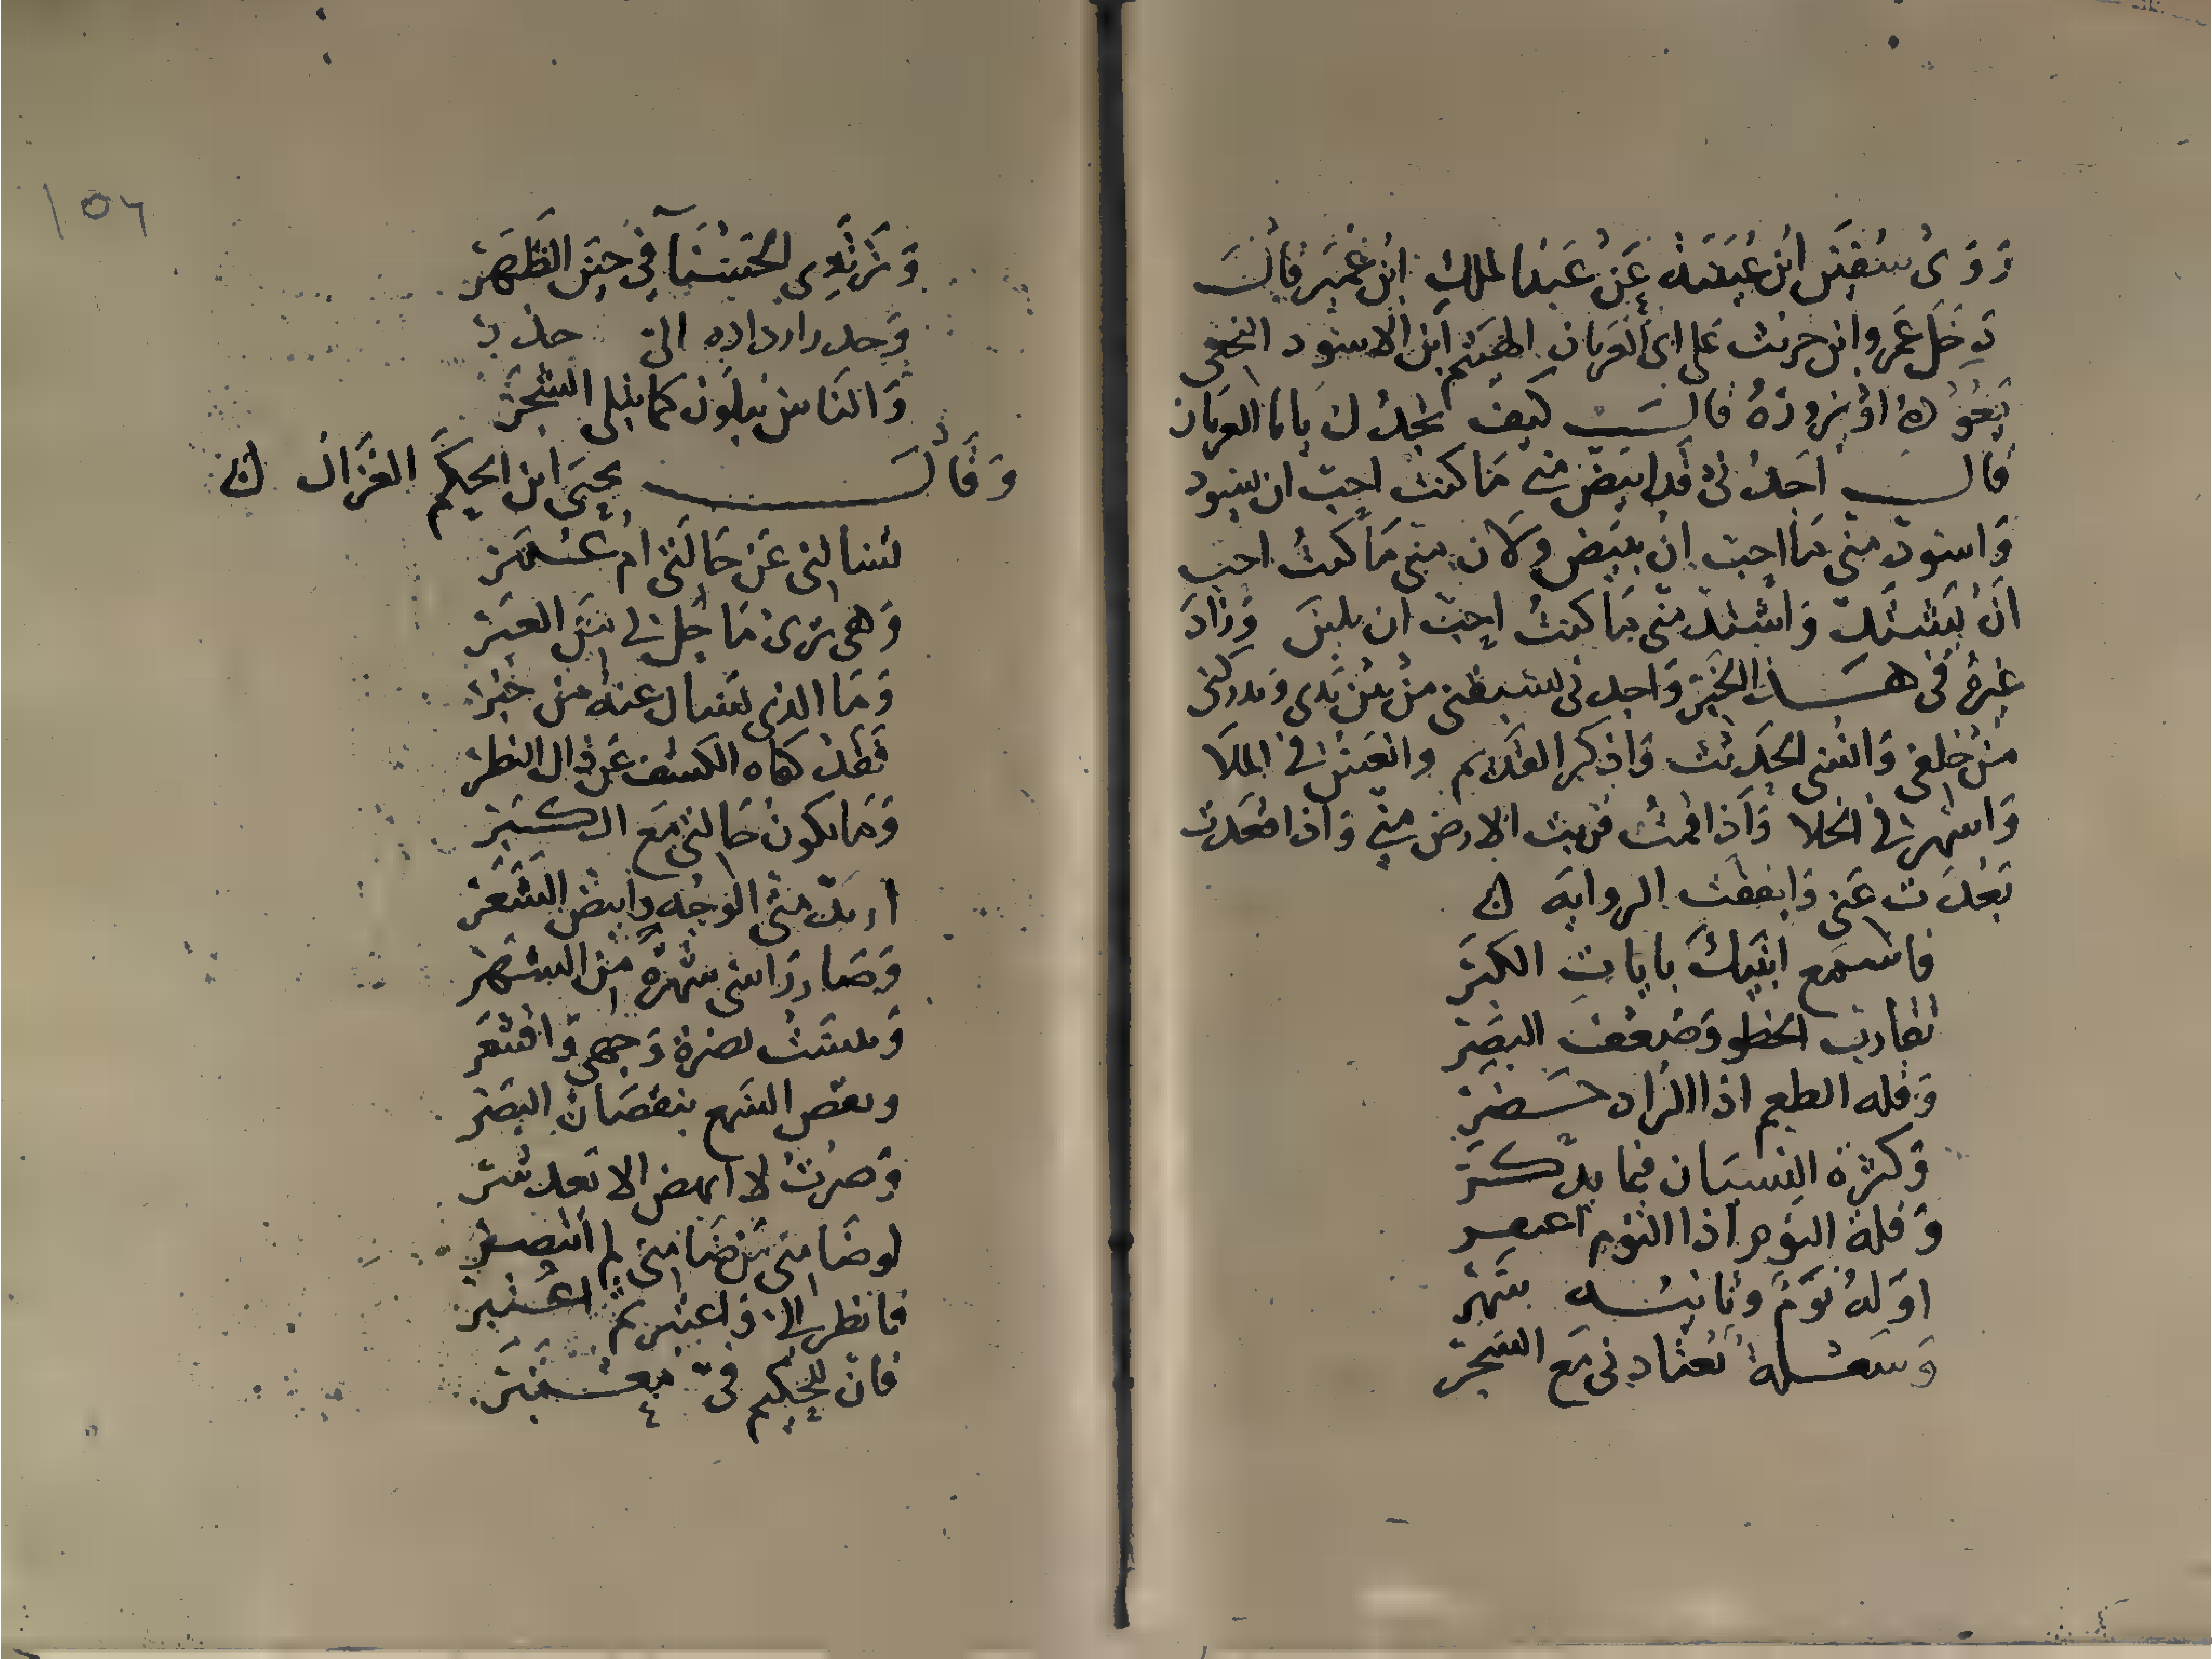 رَوَى سُفيَن ابن عُيَينَه عَن عَبد الملك ابن عُمَير قالَ
دَخَل عَمرو ابن حريث على ابى العريان الهيثم ابن الاسود النخعى
يَعُودُهُ اوْ يزورُهُ قال كيف تجدُك يابا العريان
قال اجدُنى قد ابيض منى مَا كنت احب ان يسود
وَاسود منى مَا احب ان يبيَض ولان منى مَا كنتُ احب
انْ يَشتد وَاشتد منى مَا كنتُ احب ان يلين وَزَادَ
غيرهُ فى هَذا الخبَر وَاجدنى يسبقنى من بين يَدى وَيدركنى
مَن خلفى وَانسى الحَديث وَاذكر القديم وانعس فى الملا
وَاسهر فى الخلا وَاذا قمتُ قربت الارض منى وَاذا قعدت
بَعُدَت عَنى وَاتفقت الروايَه
فاسمَع انبيكَ بايات الكبَر
تقارب الخطو وَضعف البصَر
وَقله الطعم اذا الزاد حَضر
وَكثره النسيان فيما يدكر
وَقلة النوم اذا النوم اعتكر
اوَلهُ نَوْم وَثانيه سَهَر
وَسعلة تعتادنى مَع السَحَر
١٥٦
وَالناس يبلون كما يبلى الشجَر
وَقَالَ يحيَى ابن الحكم الغزال
تسالنى عَن حَالتى ام عُمَر
وَهى ترى مَا حل بى من العبَر
وَمَا الذى تسال عنه من خبر
فقد كفاه الكشف عَن ذاك النظر
وَمَا تكون حَالتى مَع الكبَر
اربد منى الوجه وابيض الشعَر
وَصَار رَاسى شهرة من الشهَر
وَيبسَت نضرة وَجهى وَاقشعر
ونقص السَمع بنقصان البصَر
وَصرتُ لا انهض الا بَعد شَر
لو ضَامنى من ضَامنى لم انتصر
فانظر الى وَاعتبر ثم اعتبر
فان للحليم فىّ معتبَر